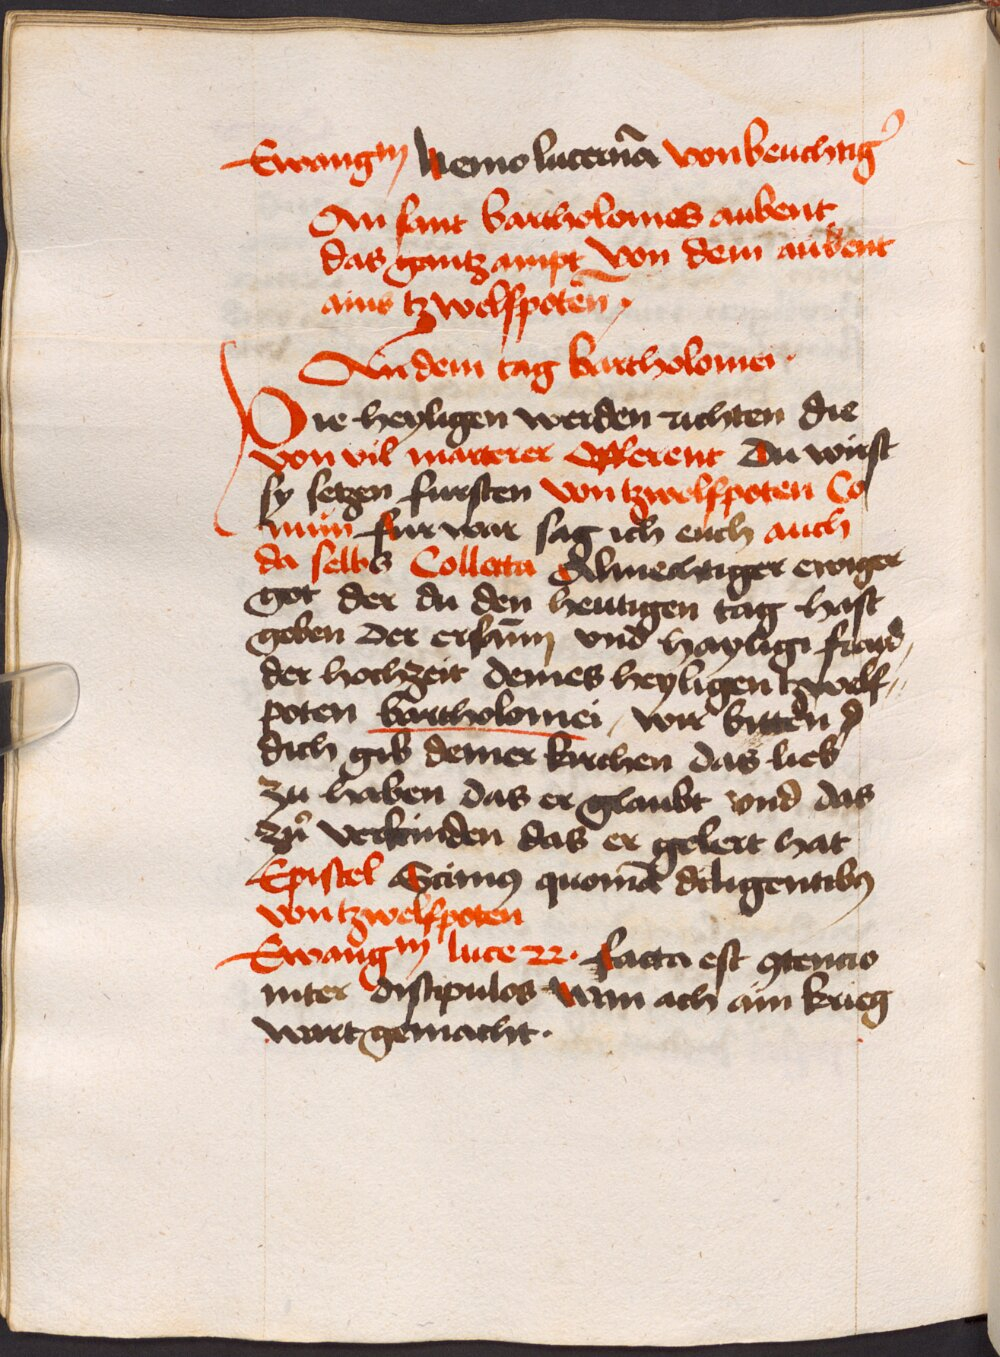 Ewangm Nemo lucernā von beuchtig᷒
An sant bartholomes aubent
das gantz ampt von dem aubent
ains tzwelfpoten̄
An dem tag bartholomei
Die heyligen werden richten die
von vil marterer Offerent Du wirst
sy setzen fursten von tzwelfpoten Co
mun fur war sag ich euch auch
da selbs Collecta Almechtiger ewiger
got der du den heutigen tag hast
geben der ersam̄ vnd hayligi fraud
der hochzeit deines heyligen tzwelf〃
poten bartholomei / wir bitten
dich gib deiner kirchen das lieb
zu haben das er glaubt vnd das
zu verkinden das er gelert hat
Epistel Scimus quoniā diligentibꝯ
von tzwelfpoten
Ewangm luce 22. facta est ꝯtencio
inter discipulos Wan ach ain krieg
wart gemacht.